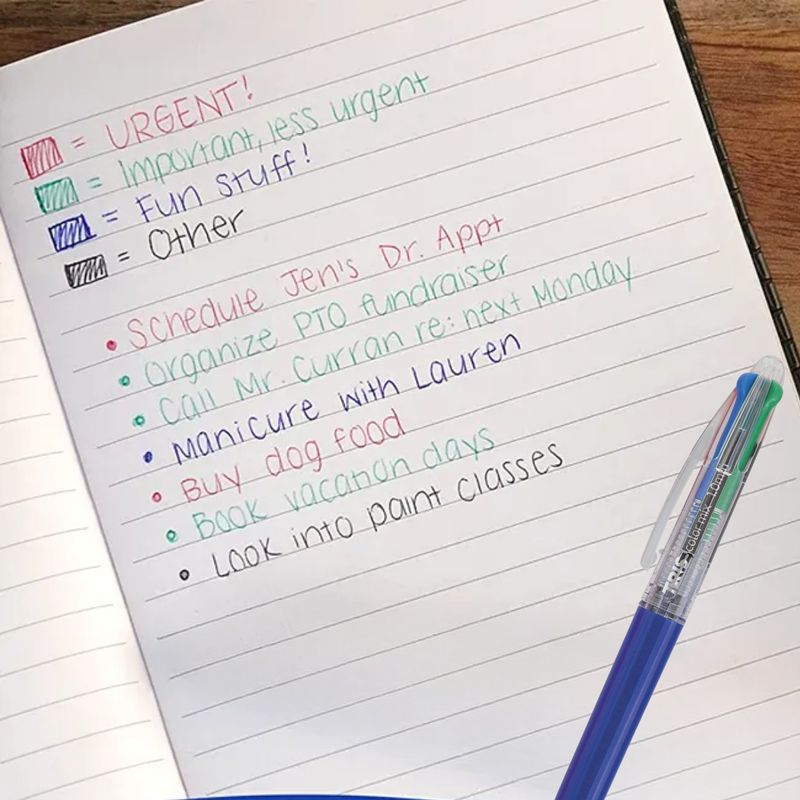 = URGENT!
= Important, less urgent
= Fun Stuff!
= Other
• Schedule Jen's Dr. Appt
• Organize PTO fundraiser
• Call Mr. Curran re: next Monday
• Manicure with Lauren
• Buy dog food
• Book vacation days
• Look into paint classes
color mix 1.0m